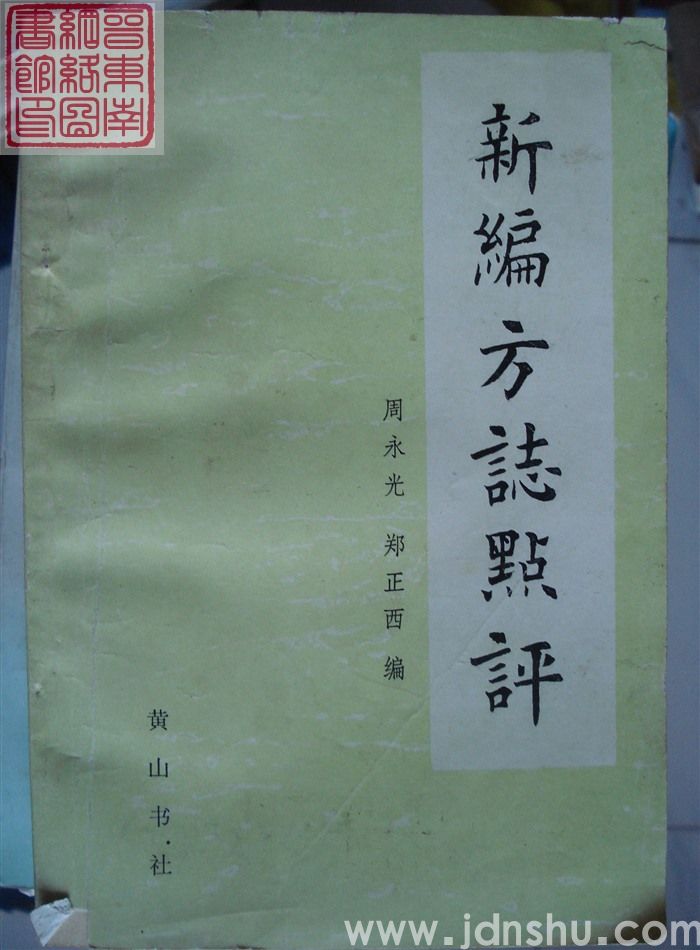 晋東南
網絡圖
書館印
新編方誌點評
周永光 郑正西 编
黄山书·社
www.jdnshu.com